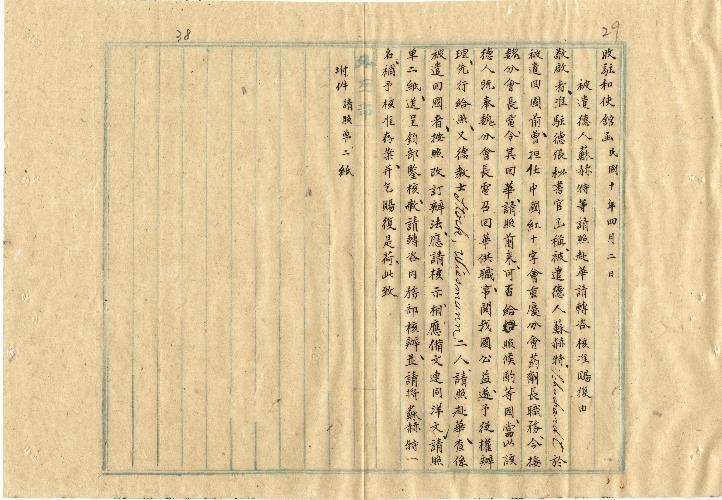 29
38
收駐和使館函民國十年四月二日
被遣德人蘇赫特等請照赴華請轉咨核准賜復由
敬啟者准駐德張秘書官函稱被遣德人蘇赫特 於
被遣回國前曾担任中國紅十字會重慶分會药劑長職務今接
魏分會長電令其回華請照前來可否給照候酌等因當以該
德人既奉魏分會長電召回華供職事関我國公益遂予從權辦
理先行給照又德教士Stock, Wiesmann二人請照赴華查係
被遣回國者按照改訂辦法應請核示相應備文連同洋文請照
單二紙送呈鈞部鑒核敬請轉咨內務部核辦並請將蘇赫特一
名補予核准存案并乞賜復是荷此致
附件 請照單二紙